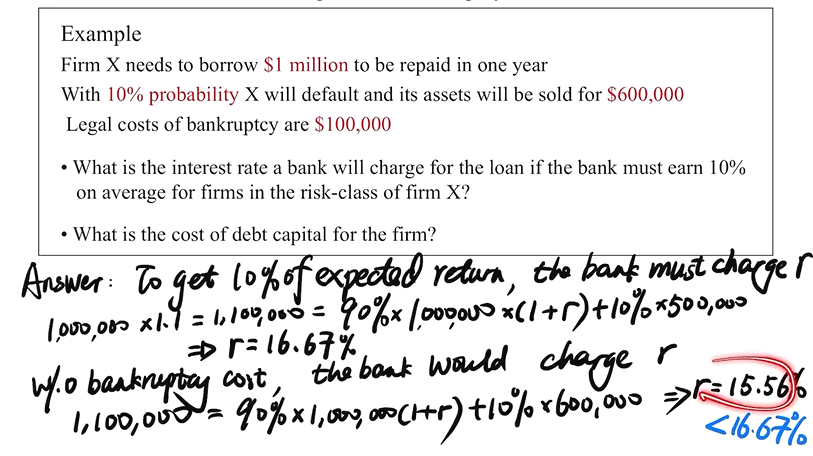 Example
Firm X needs to borrow $1 million to be repaid in one year
With 10% probability X will default and its assets will be sold for $600,000
Legal costs of bankruptcy are $100,000
• What is the interest rate a bank will charge for the loan if the bank must earn 10%
on average for firms in the risk-class of firm X?
• What is the cost of debt capital for the firm?
Answer: To get 10% of expected return, the bank must charge r
1,000,000 ×1.1 = 1,100,000 = 90%× 1,000,000 ×(1+r)+10%×500,000
⇒ r=16.67%
w/o bankruptcy cost, the bank would charge r
1,100,000 = 90%×1,000,000(1+r)+10%×600,000 ⇒ r=15.56%
<16.67%